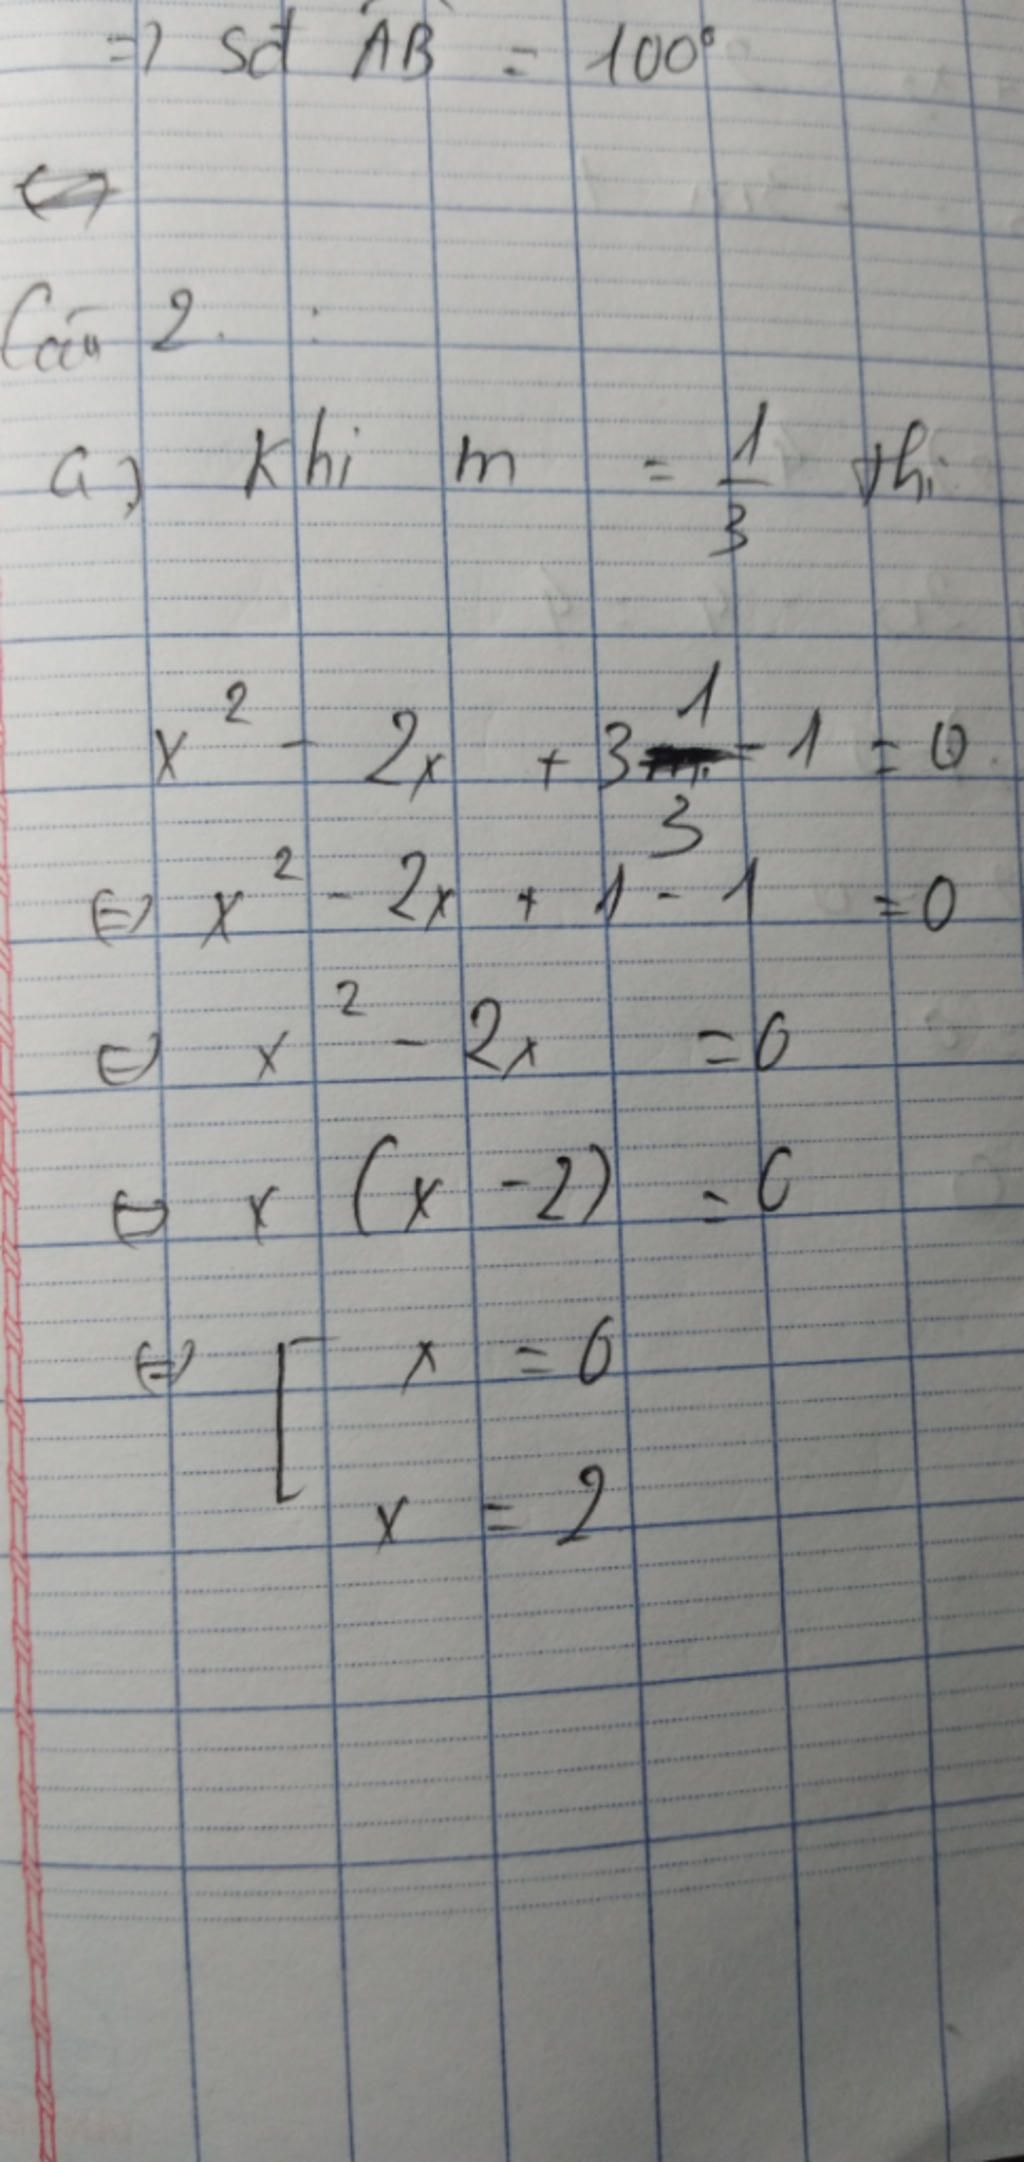 => Sđ AB = 100°
Câu 2 :
a) Khi m = 1/3 thì
x² - 2x + 3 1/3 - 1 = 0
<=> x² - 2x + 1 - 1 = 0
<=> x² - 2x = 0
<=> x (x - 2) = 0
<=> [ x = 0
x = 2